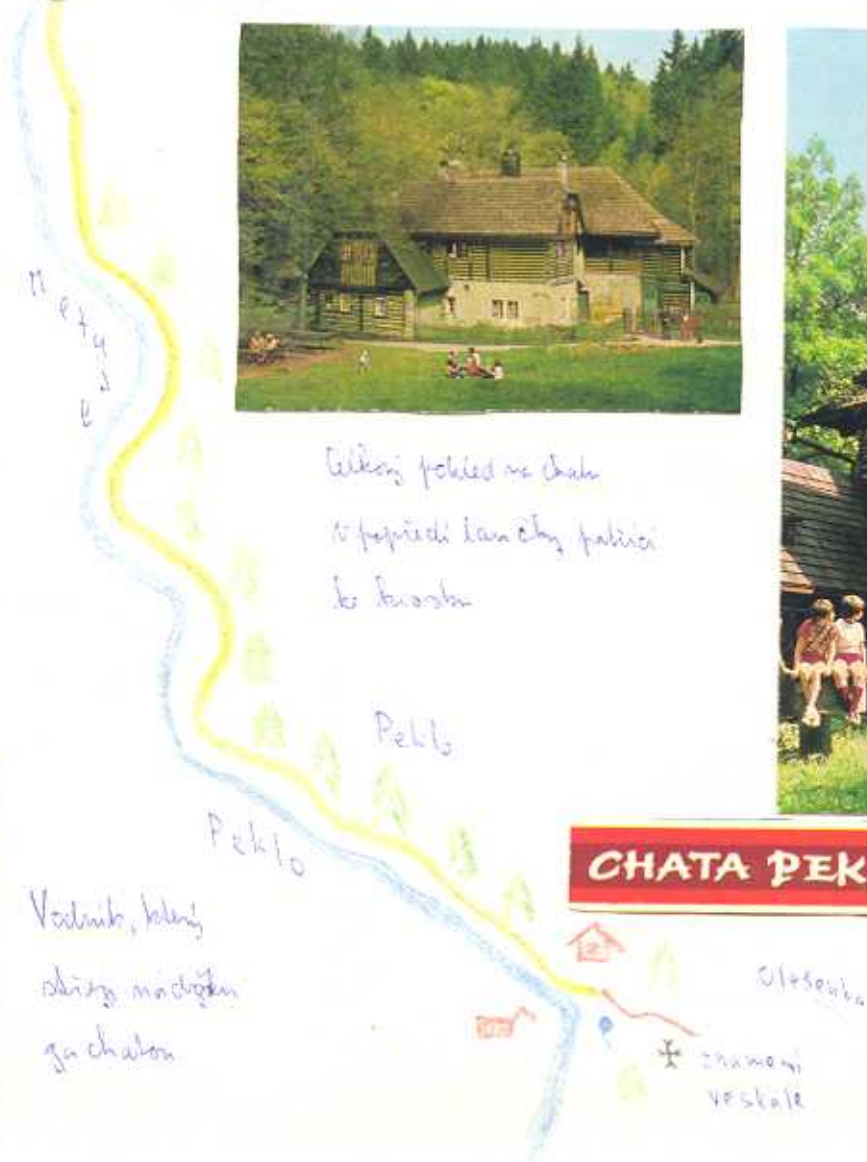 Metuje
Celkový pohled na chatu
V popředí lavičky patřící
ke kiosku
Peklo
Peklo
CHATA PEK
Vodník, který
střeží nádržku
za chatou
Olešenka
znamení
ve skále